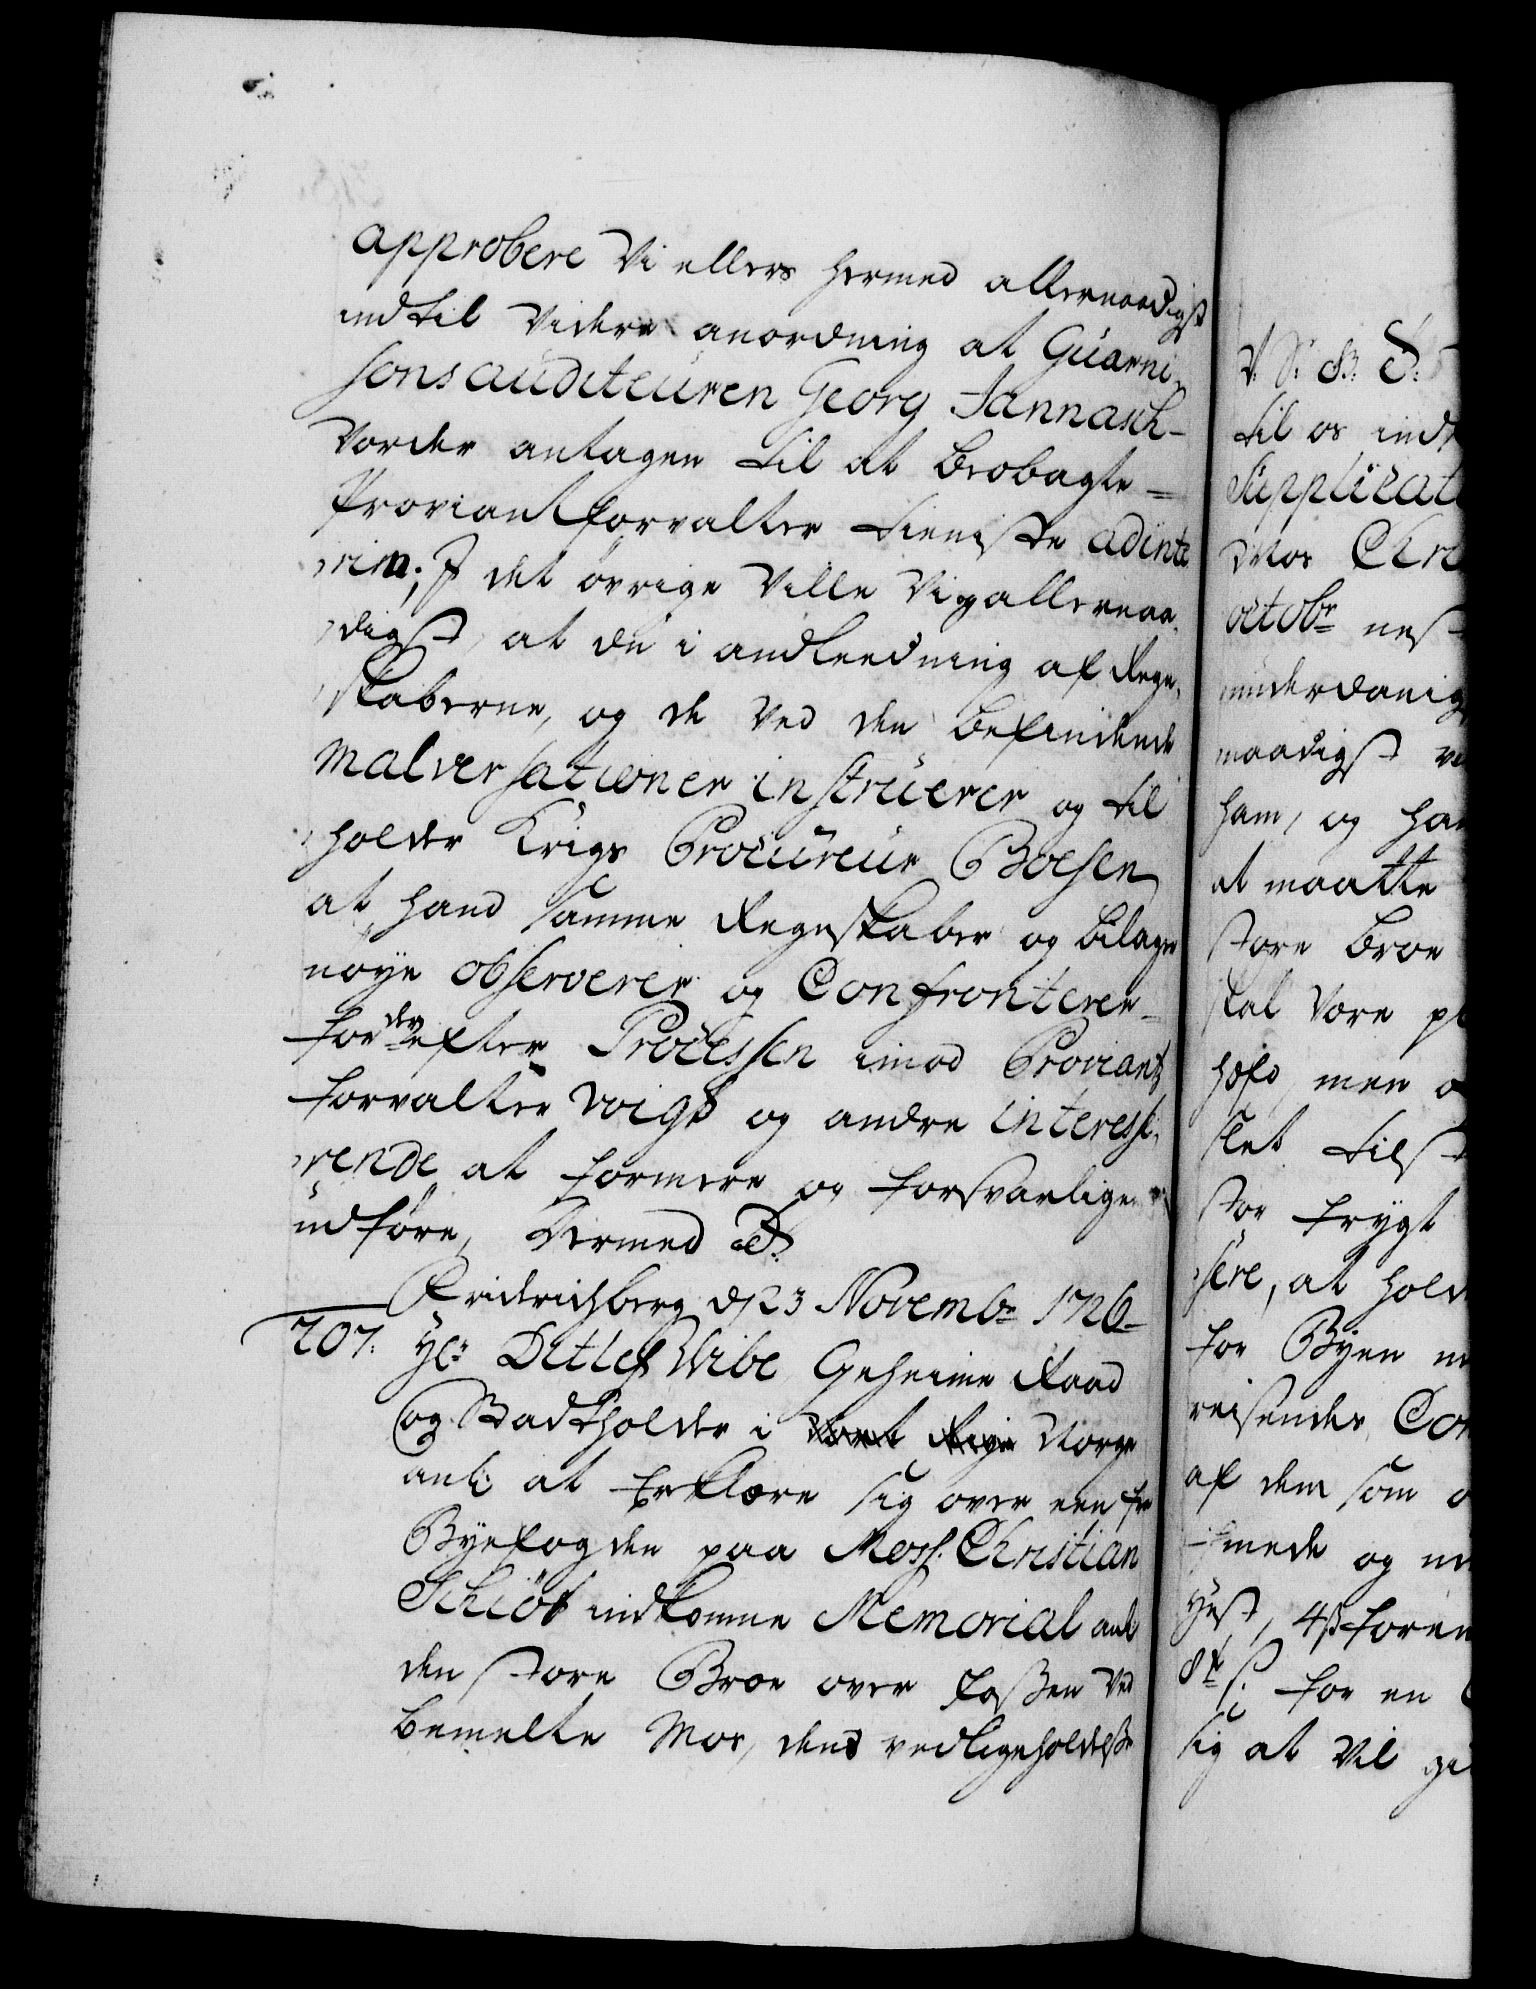 approbere Vi ellers hermed allernaadigst
indtil Videre anordning at Guarni-
sons auditeuren Georg Jannasch-
Vorder antagen til at beobagte-
Proviantforvalter tieniste adinte
rim; I det øvrige Ville Vi allernaa-
digst, at du i andleedning af Regn-
skaberne, og de Ved den befindende
malversationer instruerer og til
holder Krigs Procureur Boesen
at hand samme Regnskaber og bilager
nøye observerer og Confronterer
for derefter Processen imod Proviant
forvalter Voigt og andre interesse-
rende at formere og forsvarligen
udføre, Dermed &.
Friderichsberg d. 3 Novembr 1726-
707. Hr Ditlef Wibe Geheime Raad
og Stadtholder i Vort Rige Norge
anl: at Erklære sig over een fra
Byefogden paa Moss. Christian
Schiøt indkomne Memorial anl
den store Broe over foßen Ved
bemelte Mos, dens vedligeholdelse
V. S. G. &.
til os ind
Supplicat
Mos Chr
octobr nest
underdanig
naadigst
ham, og ha
at maatte
store broe
skal Være
høfd men
slet tilst
stor frygt
sere, at hold
for Byen
reisendes Con
af dem som
smede og
hest, 4 ß foren
8 ß. for en
sig at Vil